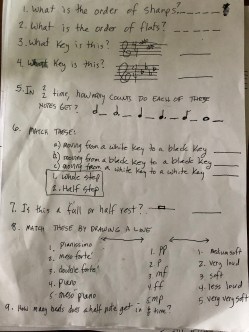 1. What is the order of sharps?
2. What is the order of flats?
3. What key is this?
4. key is this?
5. In 2/2 time, how many counts do each of these
notes get?
6. Match these:
a) moving from a white key to a black key
b) moving from a black key to a black key
c) moving from a white key to a white key
1. Whole step
2. Half step
7. Is this a full or half rest?
8. Match these by drawing a line
1. pianissimo
2. meso forte
3. double forte
4. piano
5. meso piano
1. pp
2. p
3. mf
4. ff
5. mp
1. medium soft
2. very loud
3. soft
4. less loud
5. very very soft
9. How many beats does a half note get in time?